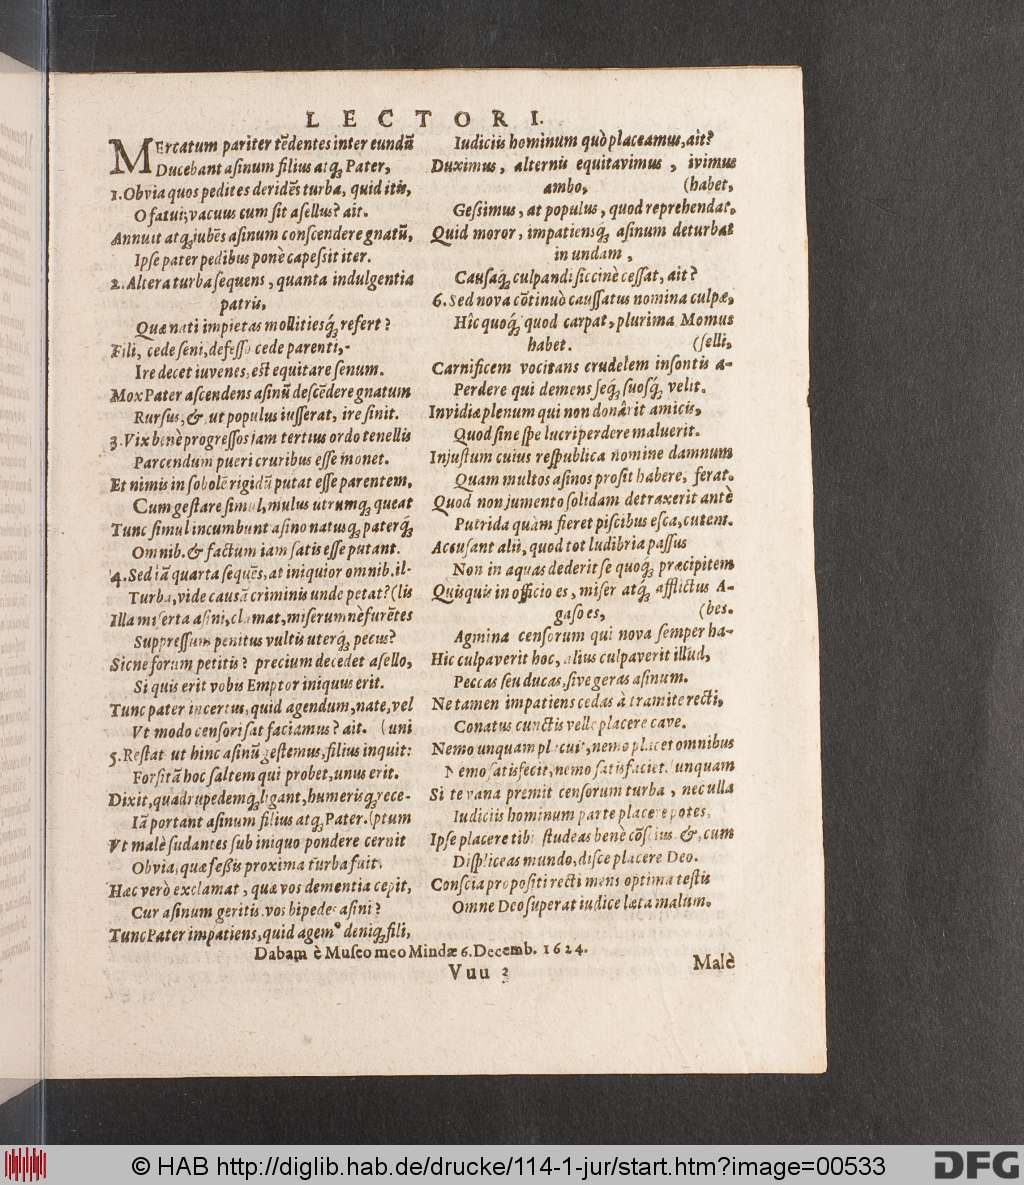 LECTORI.
MErcatum pariter tẽdentes inter eundũ
Ducebant asinum filius atq; Pater,
1. Obvia quos pedites deridẽs turba, quid itis,
O fatui; vacuus cum sit asellus? ait.
Annuit atq; jubẽs asinum conscendere gnatũ,
Ipse pater pedibus ponè capessit iter.
2. Altera turba sequens, quanta indulgentia
patris,
Quæ nati impietas mollitiesq́; refert?
Fili, cede seni, defesso cede parenti,
Ire decet iuvenes, est equitare senum.
Mox Pater ascendens asinũ descẽdere gnatum
Rursus, & ut populus iusserat, ire sinit.
3. Vix benè progressos iam tertius ordo tenellis
Parcendum pueri cruribus esse monet.
Et nimis in sobolẽ rigidũ putat esse parentem,
Cum gestare simul, mulus utrumq; queat
Tunc simul incumbunt asino natusq; paterq́;
Omnib. & factum iam satis esse putant.
4. Sed iã quarta sequẽs, at iniquior omnib. il-
Turba, vide causã criminis unde petat? (lis
Illa miserta asini, clamat, miserum nè furẽtes
Suppressum penitus vultis uterq́; pecus?
Sicne forum petitis? precium decedet asello,
Si quis erit vobis Emptor iniquus erit.
Tunc pater incertus, quid agendum, nate, vel
Ut modo censori sat faciamus? ait. (uni
5. Restat ut hinc asinũ gestemus, filius inquit:
Forsitã hoc saltem qui probet, unus erit.
Dixit, quadrupedemq; ligant, humerisq; rece-
Iã portant asinum filius atq; Pater. (ptum
Vt malè sudantes sub iniquo pondere cernit
Obvia, quæ fessis proxima turba fuit,
Hæc verò exclamat, quæ vos dementia cepit,
Cur asinum geritis vos bipedes asini?
Tunc Pater impatiens, quid agemꝰ deniq; fili,
Iudiciis hominum quò placeamus, ait?
Duximus, alternis equitavimus, ivimus
ambo, (habet,
Gessimus, at populus, quod reprehendat,
Quid moror, impatiensq; asinum deturbat
in undam,
Causaq; culpandi siccinè cessat, ait?
6. Sed nova cõtinuò caussatus nomina culpæ,
Hîc quoq́; quod carpat, plurima Momus
habet. (selli,
Carnificem vocitans crudelem insontis a-
Perdere qui demens seq́; suosq́; velit.
Invidiæ plenum qui non donârit amicis,
Quod sine spe lucri perdere maluerit.
Injustum cuius respublica nomine damnum
Quam multos asinos prosit habere, ferat.
Quod non jumento solidam detraxerit antè
Putrida quàm fieret piscibus esca, cutem.
Accusant alii, quod tot ludibria passus
Non in aquas dederit se quoq; præcipitem
Quisquis in officio es, miser atq; afflictus A-
gaso es, (bes.
Agmina censorum qui nova semper ha-
Hic culpaverit hoc, alius culpaverit illud,
Peccas seu ducas, sive geras asinum.
Ne tamen impatiens cedas à tramite recti,
Conatus cunctis velle placere cave.
Nemo unquam placuit, nemo placet omnibus
Nemo satisfecit, nemo satisfaciet. (unquam
Si te vana premit censorum turba, nec ulla
Iudiciis hominum parte placere potes,
Ipse placere tibi studeas benè cõscius &, cum
Displiceas mundo, disce placere Deo.
Conscia propositi recti mens optima testis
Omne Deo superat iudice læta malum.
Dabam è Museo meo Mindæ 6. Decemb. 1624.
Vuu 2
Malè
© HAB http://diglib.hab.de/drucke/114-1-jur/start.htm?image=00533
DFG